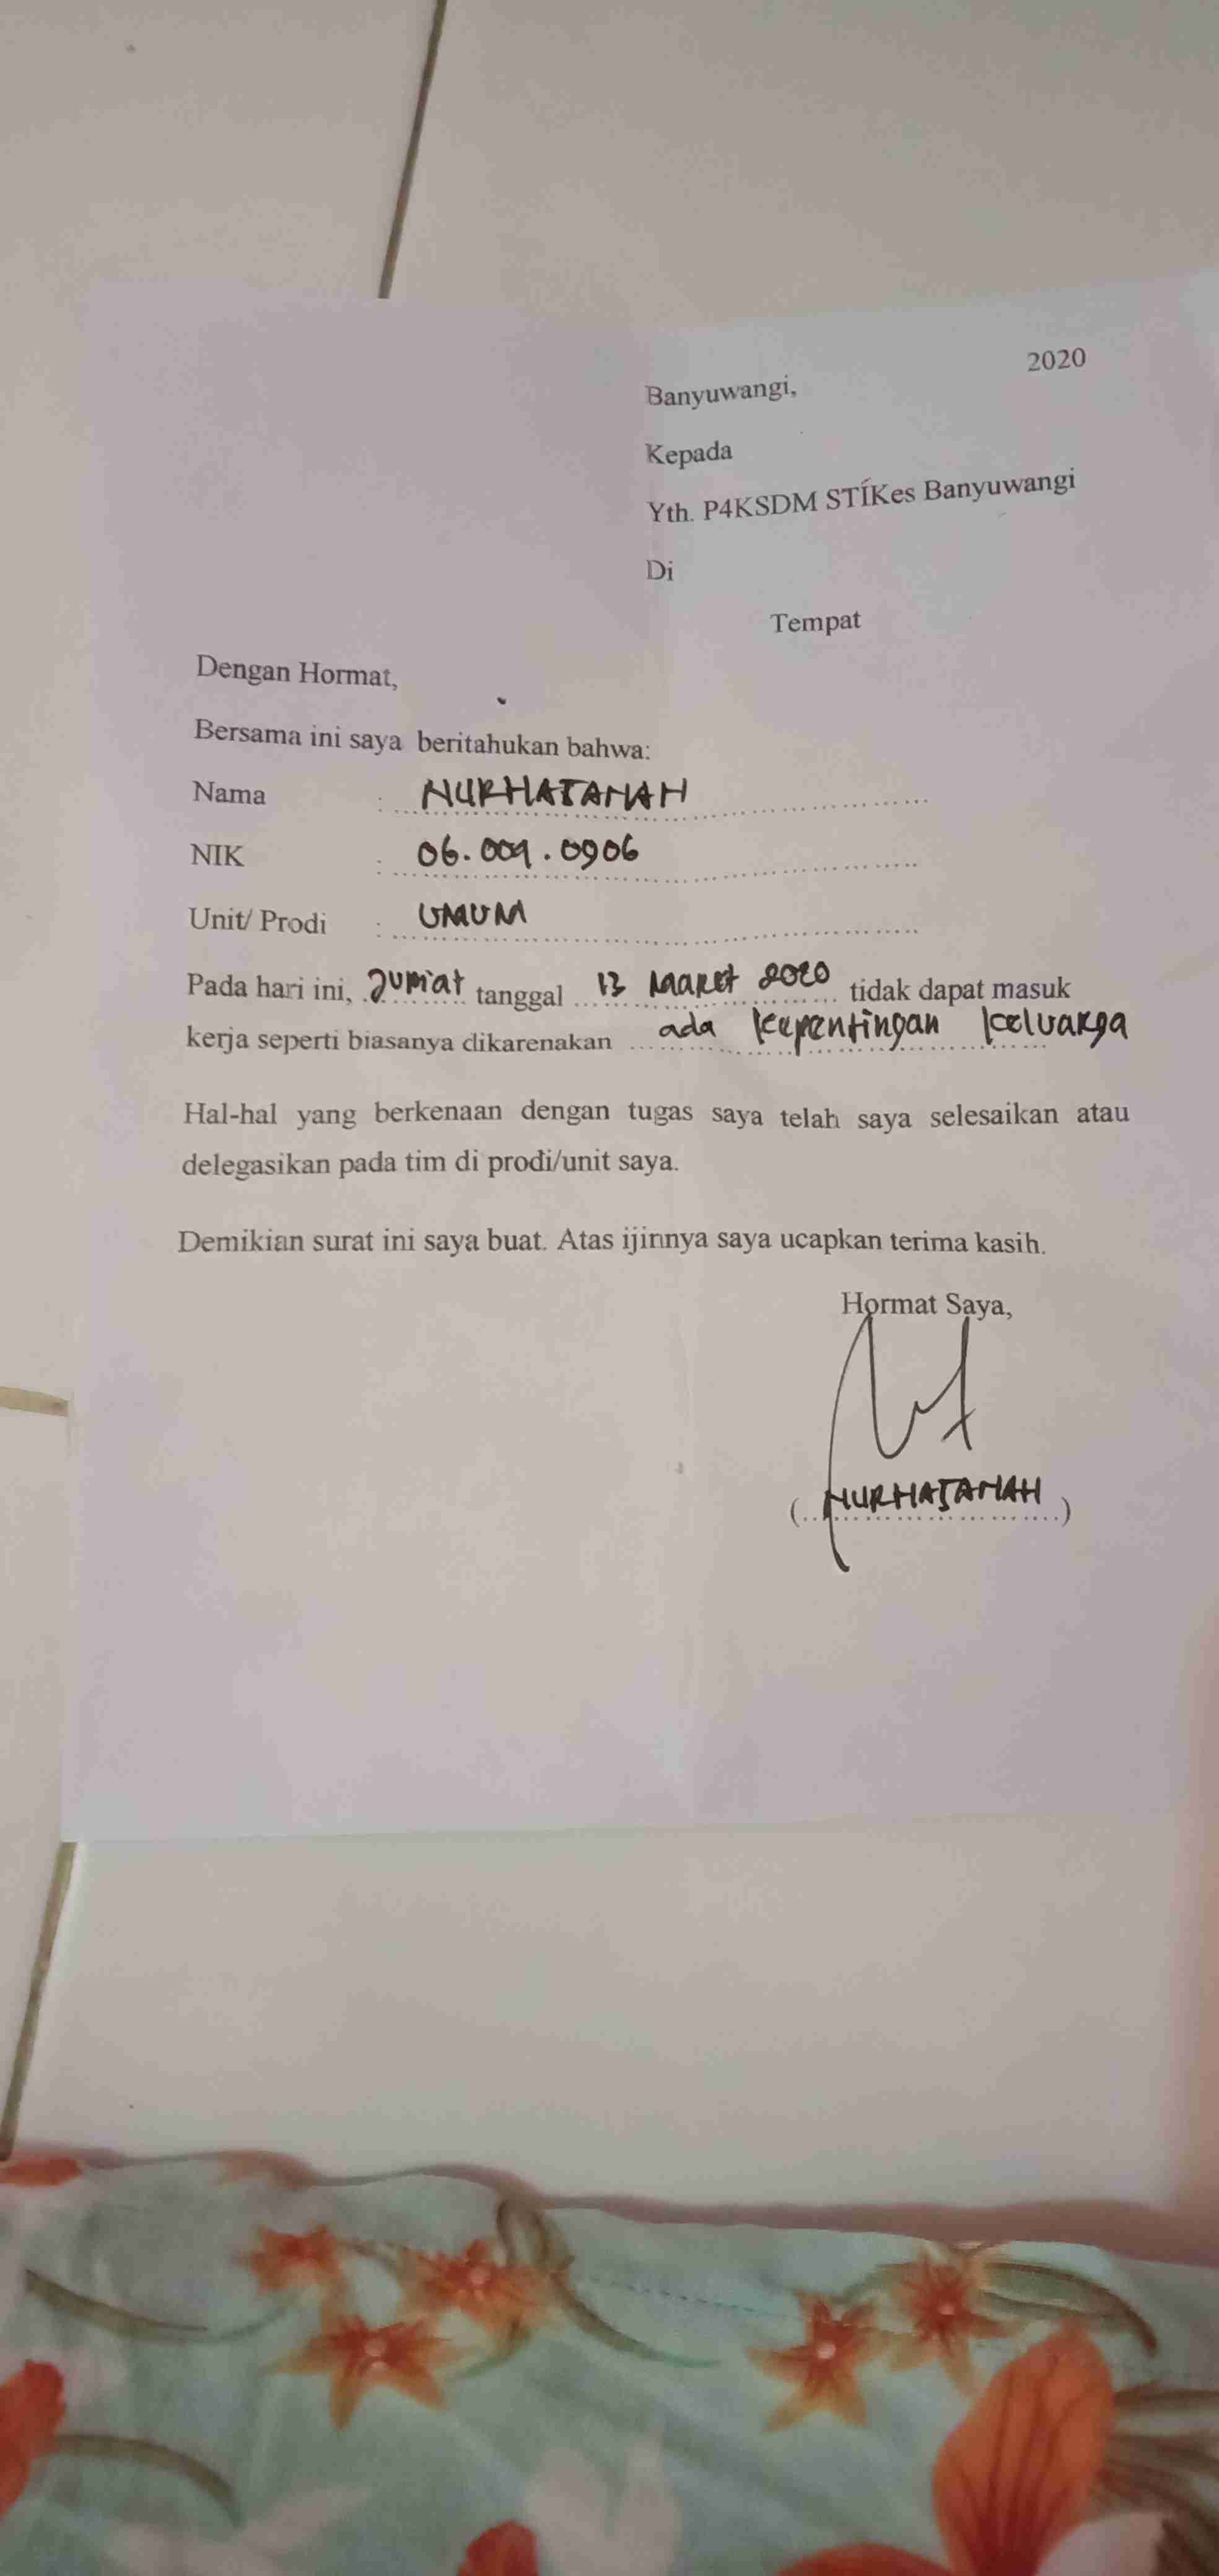 2020
Banyuwangi,
Kepada
Yth. P4KSDM STIKes Banyuwangi
Di
Tempat
Dengan Hormat,
Bersama ini saya beritahukan bahwa:
Nama : NURHASANAH
NIK : 06.009.0906
Unit/ Prodi : UMUM
Pada hari ini, Jum'at tanggal 13 Maret 2020 tidak dapat masuk
kerja seperti biasanya dikarenakan ada kepentingan keluarga
Hal-hal yang berkenaan dengan tugas saya telah saya selesaikan atau
delegasikan pada tim di prodi/unit saya.
Demikian surat ini saya buat. Atas ijinnya saya ucapkan terima kasih.
Hormat Saya,
(NURHASANAH)